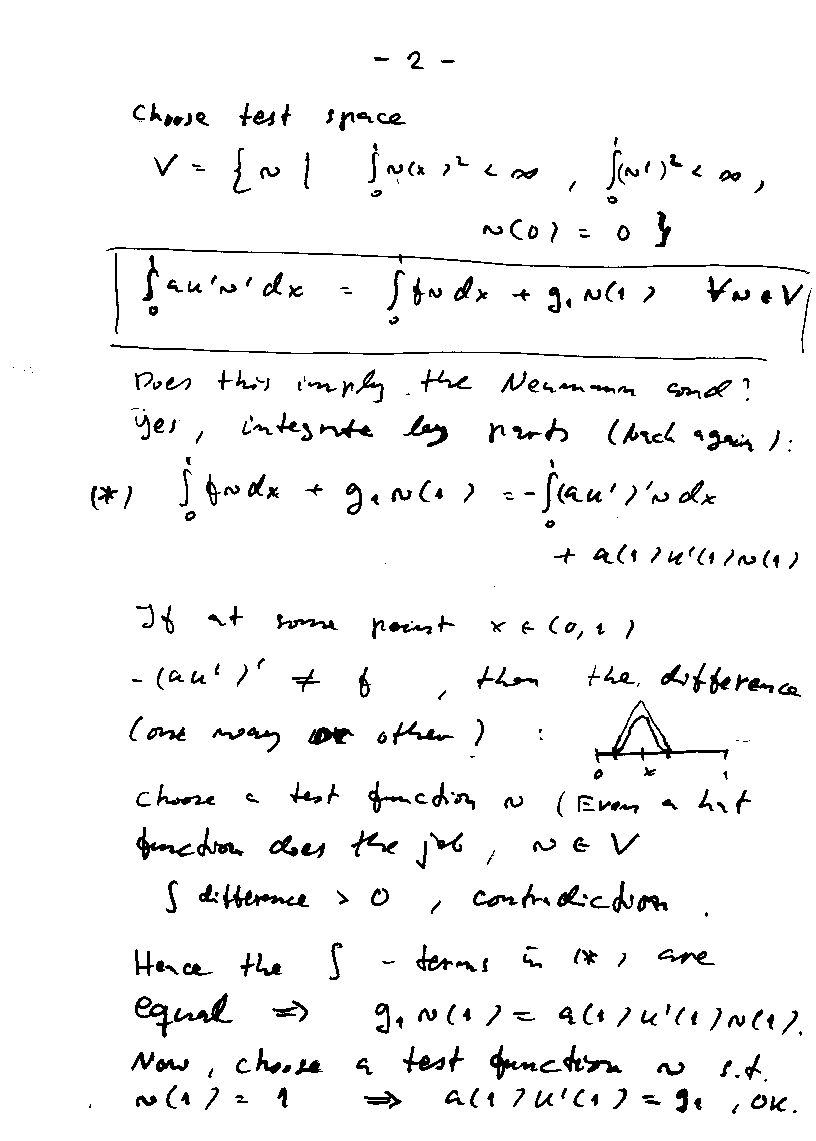 - 2 -
Choose test space
V = { v | ∫₀¹ v(x)² < ∞ , ∫₀¹ (v')² < ∞ ,
v(0) = 0 }
∫₀¹ au'v' dx = ∫₀¹ fv dx + g₁ v(1) ∀v ∈ V
Does this imply the Neumann cond?
Yes, integrate by parts (back again):
(*) ∫₀¹ fv dx + g₁ v(1) = -∫₀¹ (au')'v dx
+ a(1)u'(1)v(1)
If at some point x ∈ (0,1)
-(au')' ≠ f , then the difference
(one way or other) :
0 x 1
Choose a test function v (Even a hat
function does the job, v ∈ V
∫ difference > 0 , contradiction.
Hence the ∫ - terms in (*) are
equal ⇒ g₁ v(1) = a(1)u'(1)v(1).
Now, choose a test function v s.t.
v(1) = 1 ⇒ a(1)u'(1) = g₁ , OK.